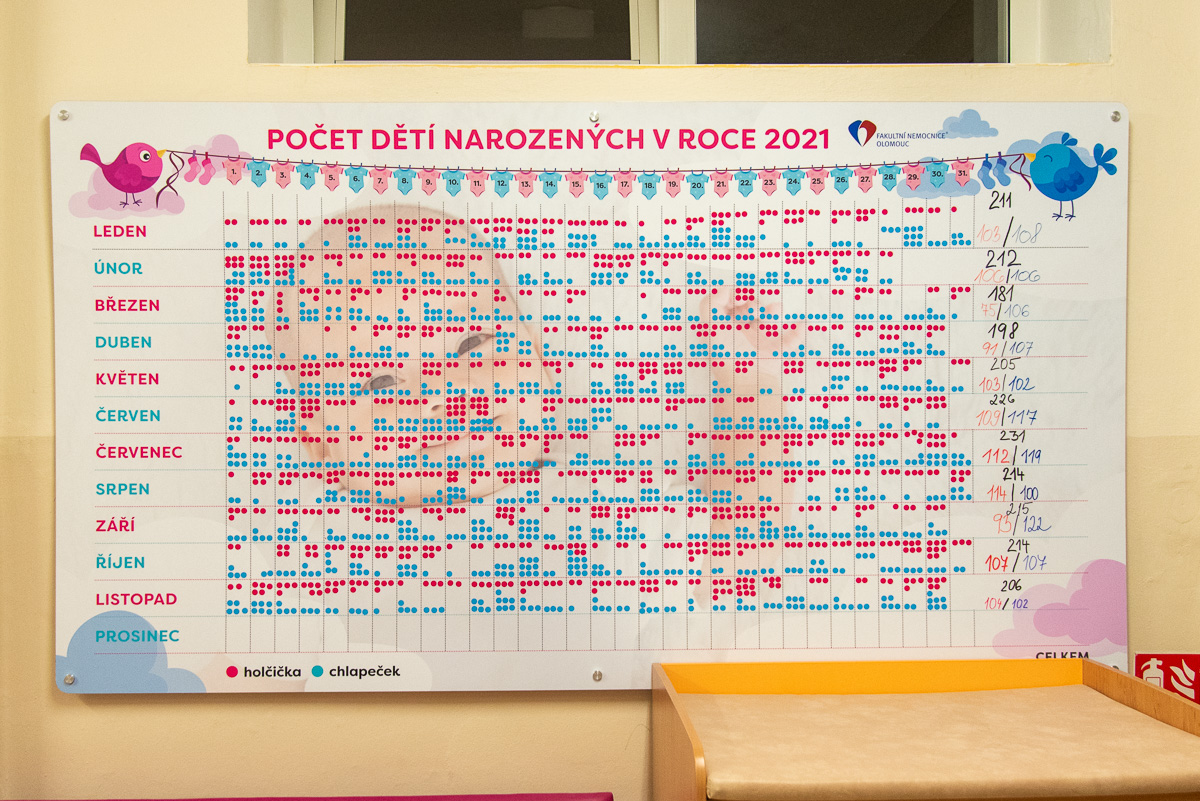 POČET DĚTÍ NAROZENÝCH V ROCE 2021
FAKULTNÍ NEMOCNICE
OLOMOUC
1. 2. 3. 4. 5. 6. 7. 8. 9. 10. 11. 12. 13. 14. 15. 16. 17. 18. 19. 20. 21. 22. 23. 24. 25. 26. 27. 28. 29. 30. 31.
211
LEDEN 103/108
ÚNOR 212
106/106
BŘEZEN 181
75/106
DUBEN 198
91/107
KVĚTEN 205
103/102
ČERVEN 226
109/117
ČERVENEC 231
112/119
SRPEN 214
114/100
ZÁŘÍ 215
93/122
ŘÍJEN 214
107/107
LISTOPAD 206
104/102
PROSINEC
CELKEM
holčička chlapeček